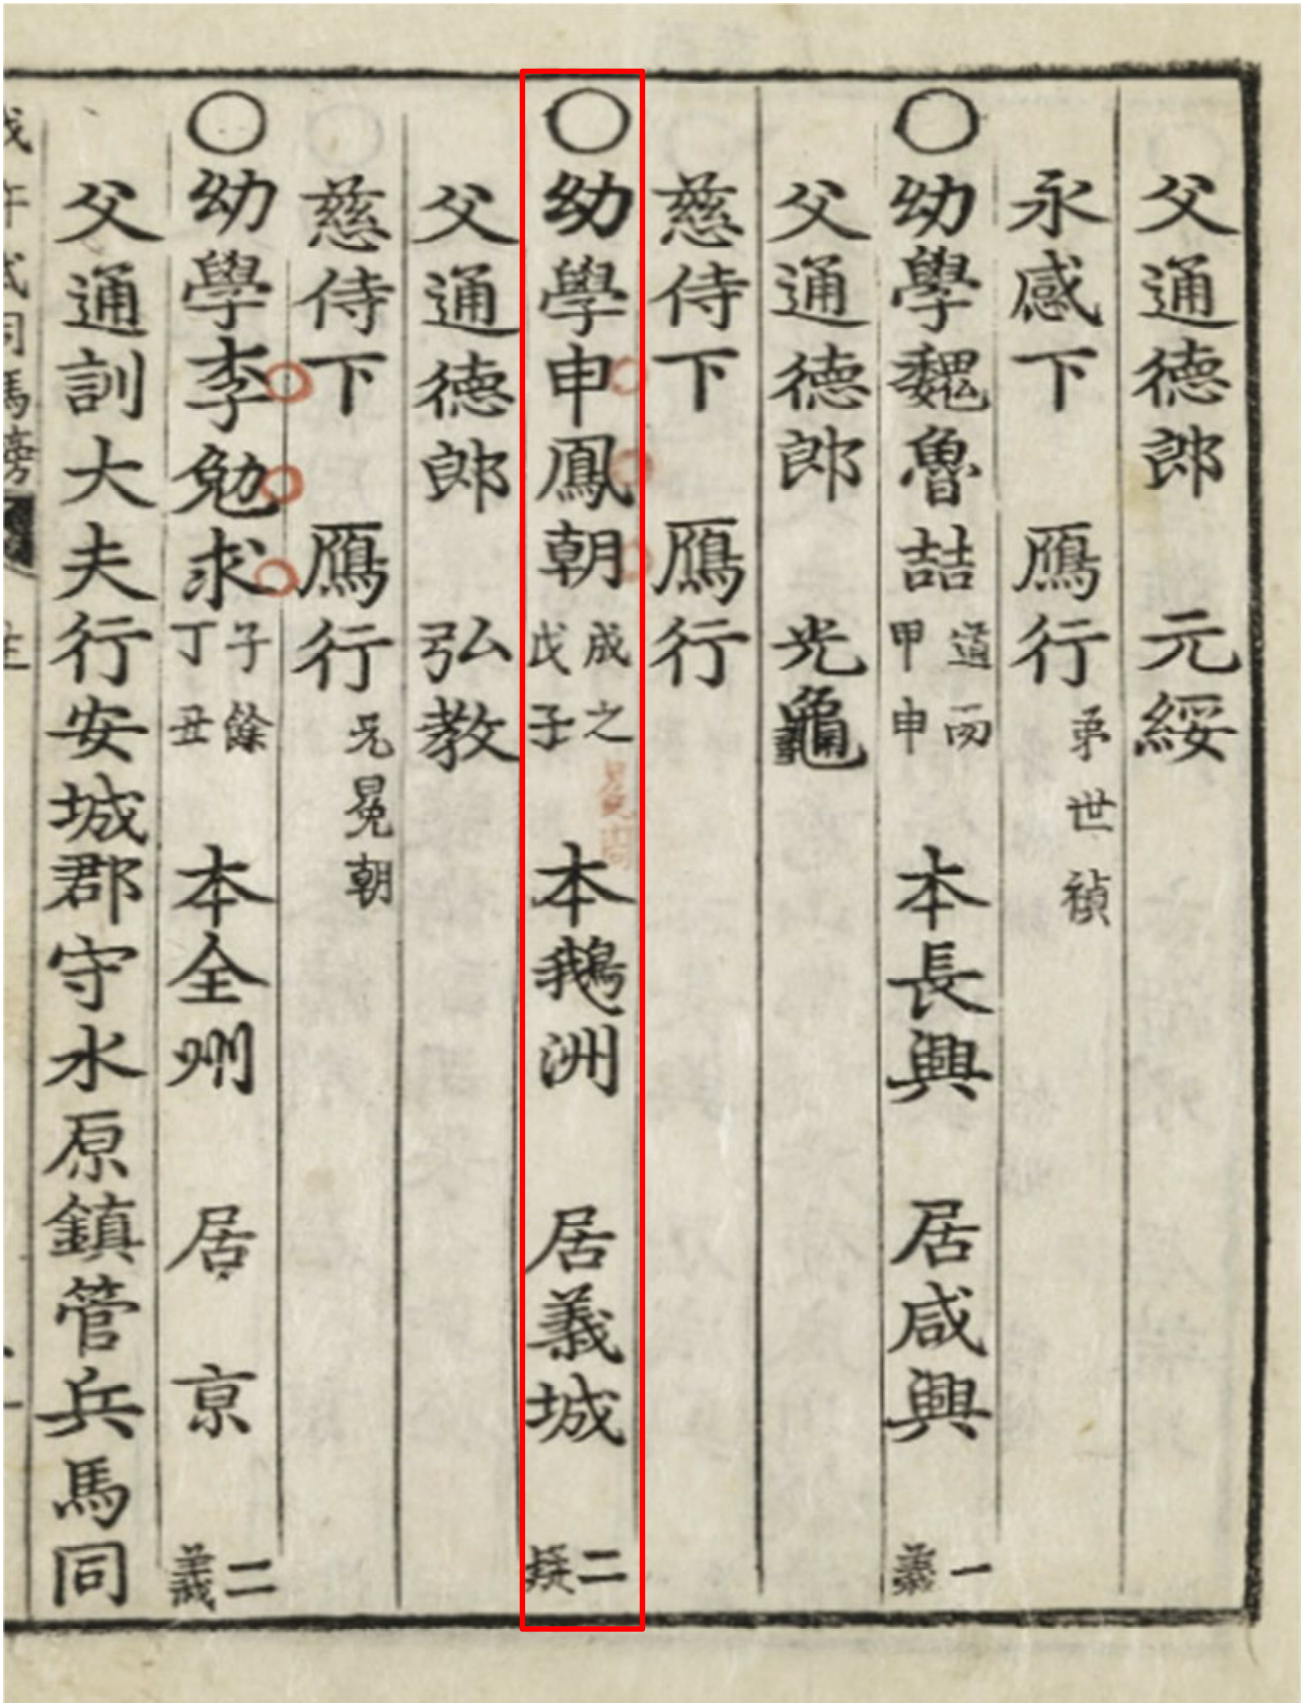 父通德郎 元綏
永感下 鴈行 弟世禎
○幼學魏魯喆 道而 甲申 本長興 居咸興 一義
父通德郎 光龜
慈侍下 鴈行
○幼學申鳳朝 成之 戊子 本鵝洲 居義城 二疑
父通德郎 弘教
慈侍下 鴈行 兄冕朝
○幼學李勉求 子餘 丁丑 本全州 居京 二義
父通訓大夫行安城郡守水原鎮管兵馬同